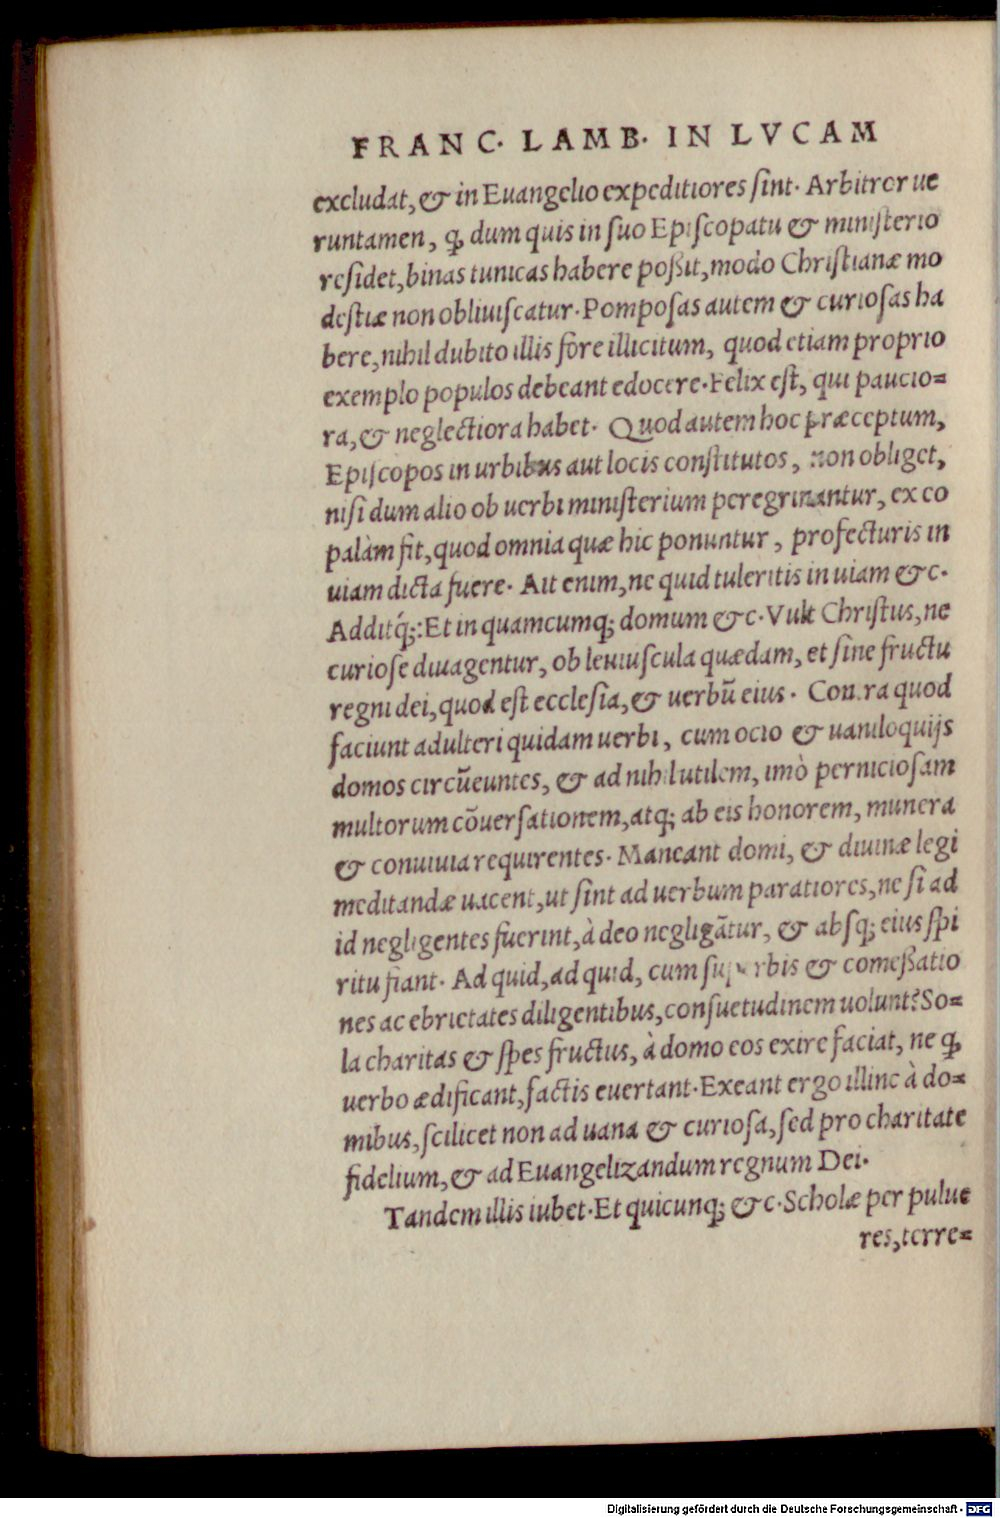 FRANC. LAMB. IN LVCAM
excludat, & in Euangelio expeditiores sint. Arbitror ue
runtamen, ꝙ dum quis in suo Episcopatu & ministerio
residet, binas tunicas habere poßit, modo Christianæ mo
destiæ non obliuiscatur. Pomposas autem & curiosas ha
bere, nihil dubito illis fore illicitum, quod etiam proprio
exemplo populos debeant edocere. Felix est, qui paucio=
ra, & neglectiora habet. Quod autem hoc præceptum,
Episcopos in urbibus aut locis constitutos, non obliget,
nisi dum alio ob uerbi ministerium peregrinantur, ex eo
palàm fit, quod omnia quæ hic ponuntur, profecturis in
uiam dicta fuere. Ait enim, ne quid tuleritis in uiam &c.
Additq́;: Et in quamcumq; domum &c. Vult Christus, ne
curiose diuagentur, ob leuiuscula quædam, et sine fructu
regni dei, quod est ecclesia, & uerbū eius. Contra quod
faciunt adulteri quidam uerbi, cum ocio & uaniloquijs
domos circūeuntes, & ad nihil utilem, imò perniciosam
multorum cōuersationem, atq; ab eis honorem, munera
& conuiuia requirentes. Maneant domi, & diuinæ legi
meditandæ uacent, ut sint ad uerbum paratiores, ne si ad
id negligentes fuerint, à deo negligātur, & absq; eius spi
ritu fiant. Ad quid, ad quid, cum superbis & comeßatio
nes ac ebrietates diligentibus, consuetudinem uolunt? So=
la charitas & spes fructus, à domo eos exire faciat, ne ꝙ
uerbo ædificant, factis euertant. Exeant ergo illinc à do=
mibus, scilicet non ad uana & curiosa, sed pro charitate
fidelium, & ad Euangelizandum regnum Dei.
Tandem illis iubet. Et quicunq; & c. Scholæ per pulue
res, terre=
Digitalisierung gefördert durch die Deutsche Forschungsgemeinschaft - DFG